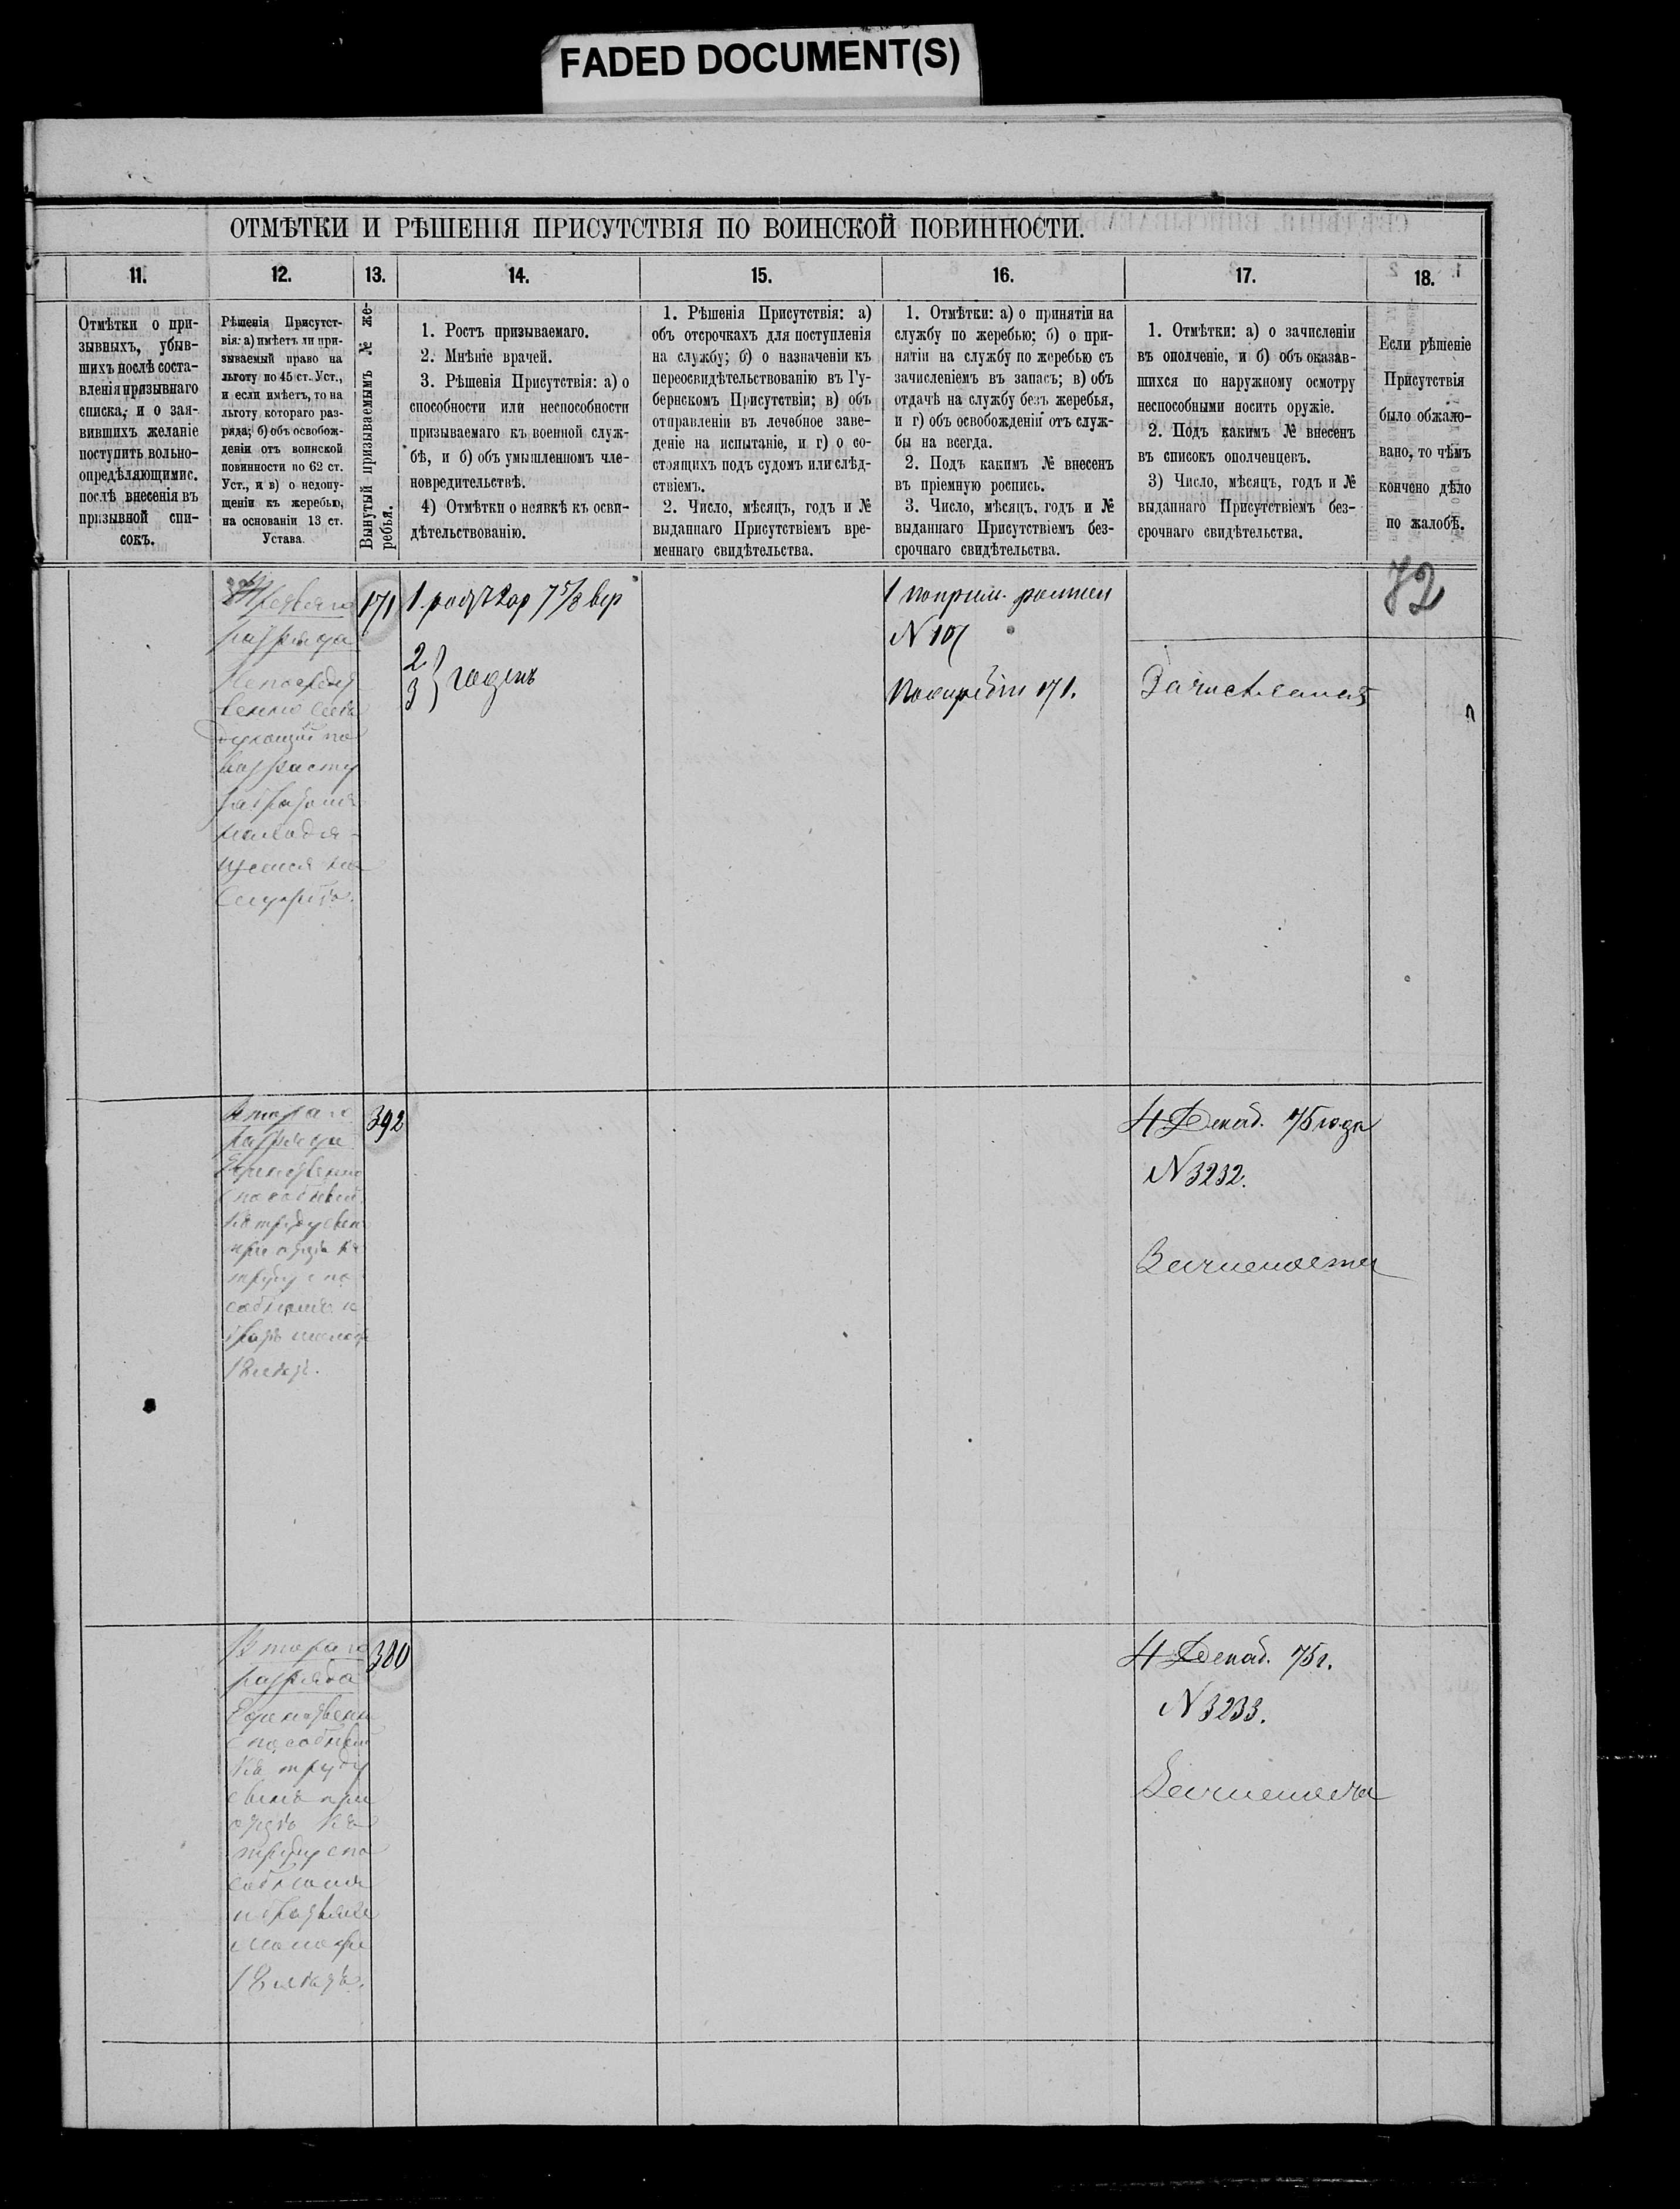 FADED DOCUMENT(S)
ОТМѢТКИ И РѢШЕНІЯ ПРИСУТСТВІЯ ПО ВОИНСКОЙ ПОВИННОСТИ.
11.
12.
13.
14.
15.
16.
17.
18.
Отмѣтки о при-
зывныхъ, убыв-
шихъ послѣ соста-
вленія призывнаго
списка, и о зая-
вившихъ желаніе
поступить вольно-
опредѣляющимис.
послѣ внесенія въ
призывной спи-
сокъ.
Рѣшенія Присутст-
вія: а) имѣетъ ли при-
зываемый право на
льготу по 45 ст. Уст.,
и если имѣетъ, то на
льготу котораго раз-
ряда; б) объ освобож-
деніи отъ воинской
повинности по 62 ст.
Уст., и в) о недопу-
щеніи къ жеребью,
на основаніи 13 ст.
Устава.
Вынутый призываемымъ № же-
ребья.
1. Ростъ призываемаго.
2. Мнѣніе врачей.
3. Рѣшенія Присутствія: а) о
способности или неспособности
призываемаго къ военной служ-
бѣ, и б) объ умышленномъ чле-
новредительствѣ.
4) Отмѣтки о неявкѣ къ осви-
дѣтельствованію.
1. Рѣшенія Присутствія: а)
объ отсрочкахъ для поступленія
на службу; б) о назначеніи къ
переосвидѣтельствованію въ Гу-
бернскомъ Присутствіи; в) объ
отправленіи въ лечебное заве-
деніе на испытаніе, и г) о со-
стоящихъ подъ судомъ или слѣд-
ствіемъ.
2. Число, мѣсяцъ, годъ и №
выданнаго Присутствіемъ вре-
меннаго свидѣтельства.
1. Отмѣтки: а) о принятіи на
службу по жеребью; б) о при-
нятіи на службу по жеребью съ
зачисленіемъ въ запасъ; в) объ
отдачѣ на службу безъ жеребья,
и г) объ освобожденіи отъ служ-
бы на всегда.
2. Подъ какимъ № внесенъ
въ пріемную роспись.
3. Число, мѣсяцъ, годъ и №
выданнаго Присутствіемъ без-
срочнаго свидѣтельства.
1. Отмѣтки: а) о зачисленіи
въ ополченіе, и б) объ оказав-
шихся по наружному осмотру
неспособными носить оружіе.
2. Подъ какимъ № внесенъ
въ списокъ ополченцевъ.
3) Число, мѣсяцъ, годъ и №
выданнаго Присутствіемъ без-
срочнаго свидѣтельства.
Если рѣшеніе
Присутствія
было обжало-
вано, то чѣмъ
кончено дѣло
по жалобѣ.
72
разряда
Непосредст
венно слѣ
дующій по
возрасту
за братомъ
находя-
щемся на
службѣ.
171
1. ростъ 2 ар 7 5/8 вер
2
3 } годенъ
1 по прим. росписи
N 107
По жребію 171.
Втораго
разряда
Единственно
способный
къ труду сын
при отцѣ къ
труду спо
собномъ и
братѣ молож
18 лѣтъ.
392
4 Декаб. 75 года
N 3232.
Втораго
разряда
Единственн
способный
къ труду
сынъ при
отцѣ къ
труду спо
собномъ
и братьяхъ
моложе
18 лѣтъ.
380
4 Декаб. 75 г.
N 3233.